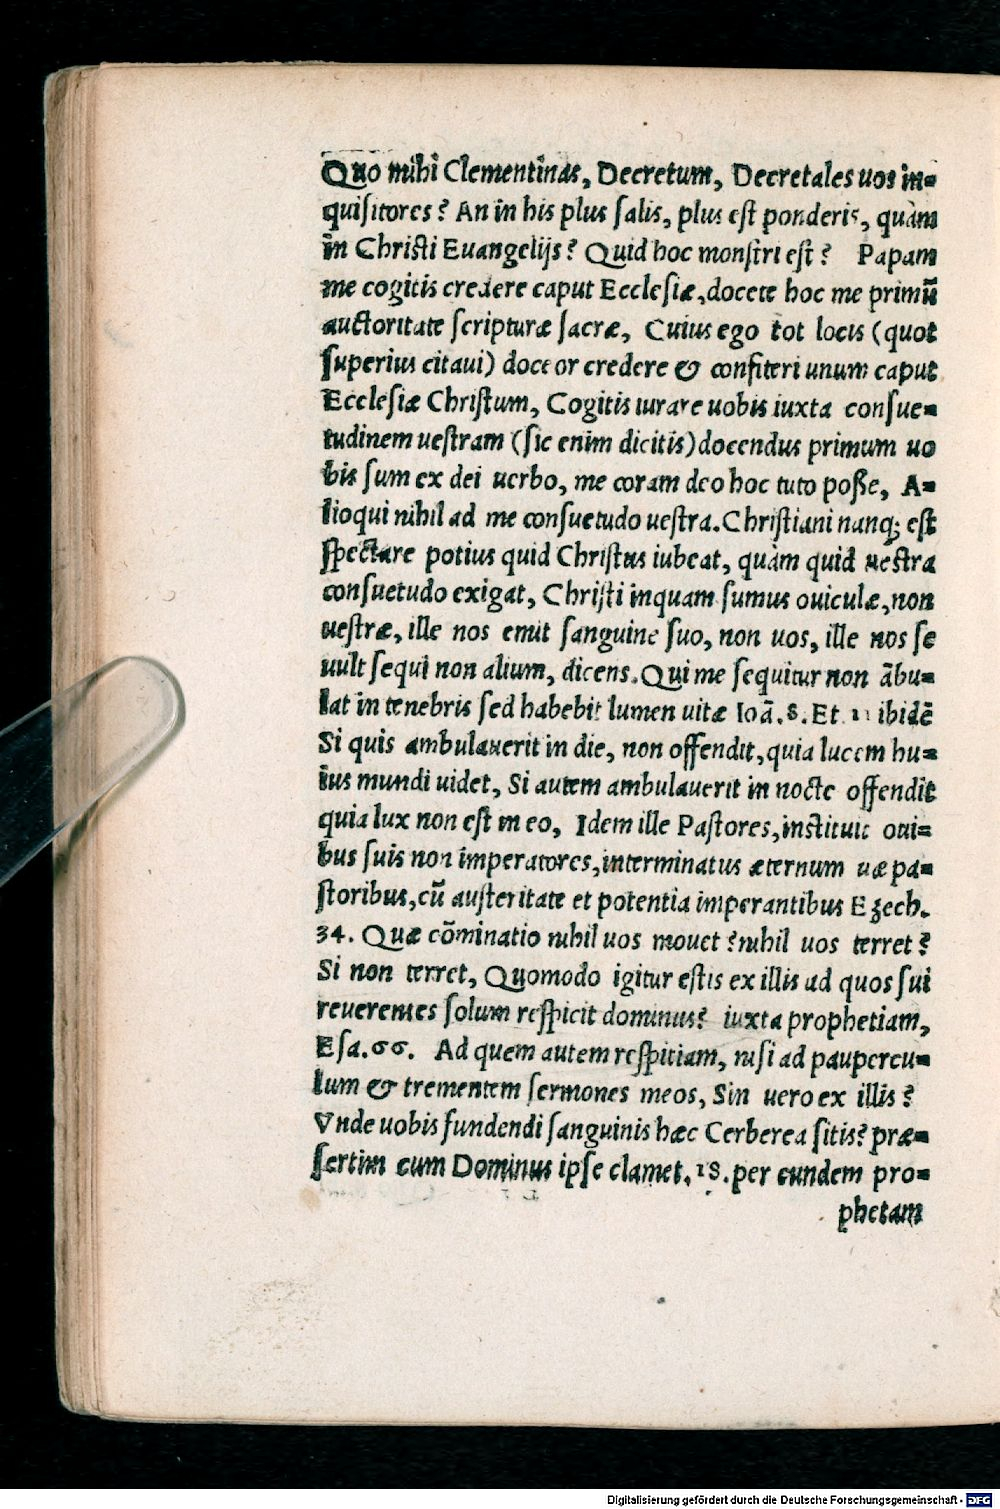 Quo mihi Clementinas, Decretum, Decretales uos in=
quisitores? An in his plus salis, plus est ponderis, quàm
in Christi Euangelijs? Quid hoc monstri est? Papam
me cogitis credere caput Ecclesiæ, docete hoc me primũ
auctoritate scripturæ sacræ, Cuius ego tot locis (quot
superius citaui) doceor credere & confiteri unum caput
Ecclesiæ Christum, Cogitis iurare uobis iuxta consue=
tudinem uestram (sic enim dicitis) docendus primum uo
bis sum ex dei uerbo, me coram deo hoc tuto posse, A=
lioqui nihil ad me consuetudo uestra. Christiani nanq; est
spectare potius quid Christus iubeat, quàm quid uestra
consuetudo exigat, Christi inquam sumus ouiculæ, non
uestræ, ille nos emit sanguine suo, non uos, ille nos se
uult sequi non alium, dicens. Qui me sequitur non ãbu=
lat in tenebris sed habebit lumen uitæ Ioã. 8. Et 11 ibidẽ
Si quis ambulauerit in die, non offendit, quia lucem hu=
ius mundi uidet, Si autem ambulauerit in nocte offendit
quia lux non est in eo, Idem ille Pastores, instituit oui=
bus suis non imperatores, interminatus æternum uæ pa=
storibus, cũ austeritate et potentia imperantibus Ezech.
34. Quæ cõminatio nihil uos mouet? nihil uos terret?
Si non terret, Quomodo igitur estis ex illis ad quos sui
reuerentes solum respicit dominus? iuxta prophetiam,
Esa. 66. Ad quem autem respitiam, nisi ad paupercu=
lum & trementem sermones meos, Sin uero ex illis?
Vnde uobis fundendi sanguinis hæc Cerberea sitis? præ=
sertim cum Dominus ipse clamet. 18. per eundem pro=
phetam
Digitalisierung gefördert durch die Deutsche Forschungsgemeinschaft - DFG